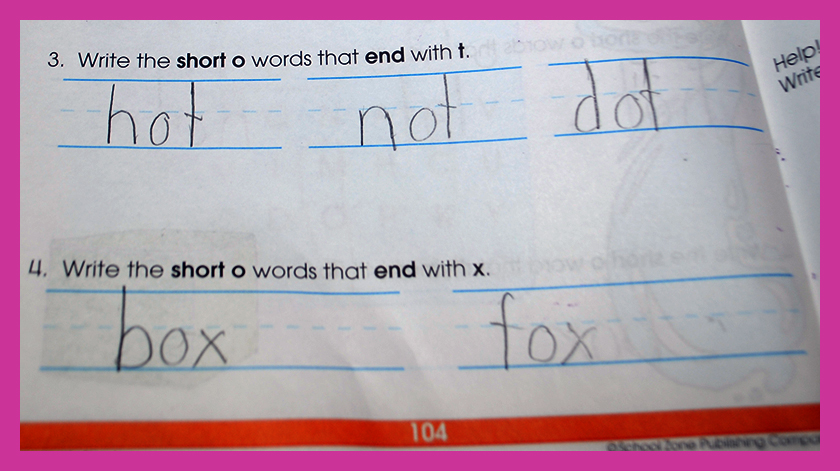 3. Write the short o words that end with t.
Help!
Write
hot not dot
4. Write the short o words that end with x.
box fox
104
©School Zone Publishing Compa